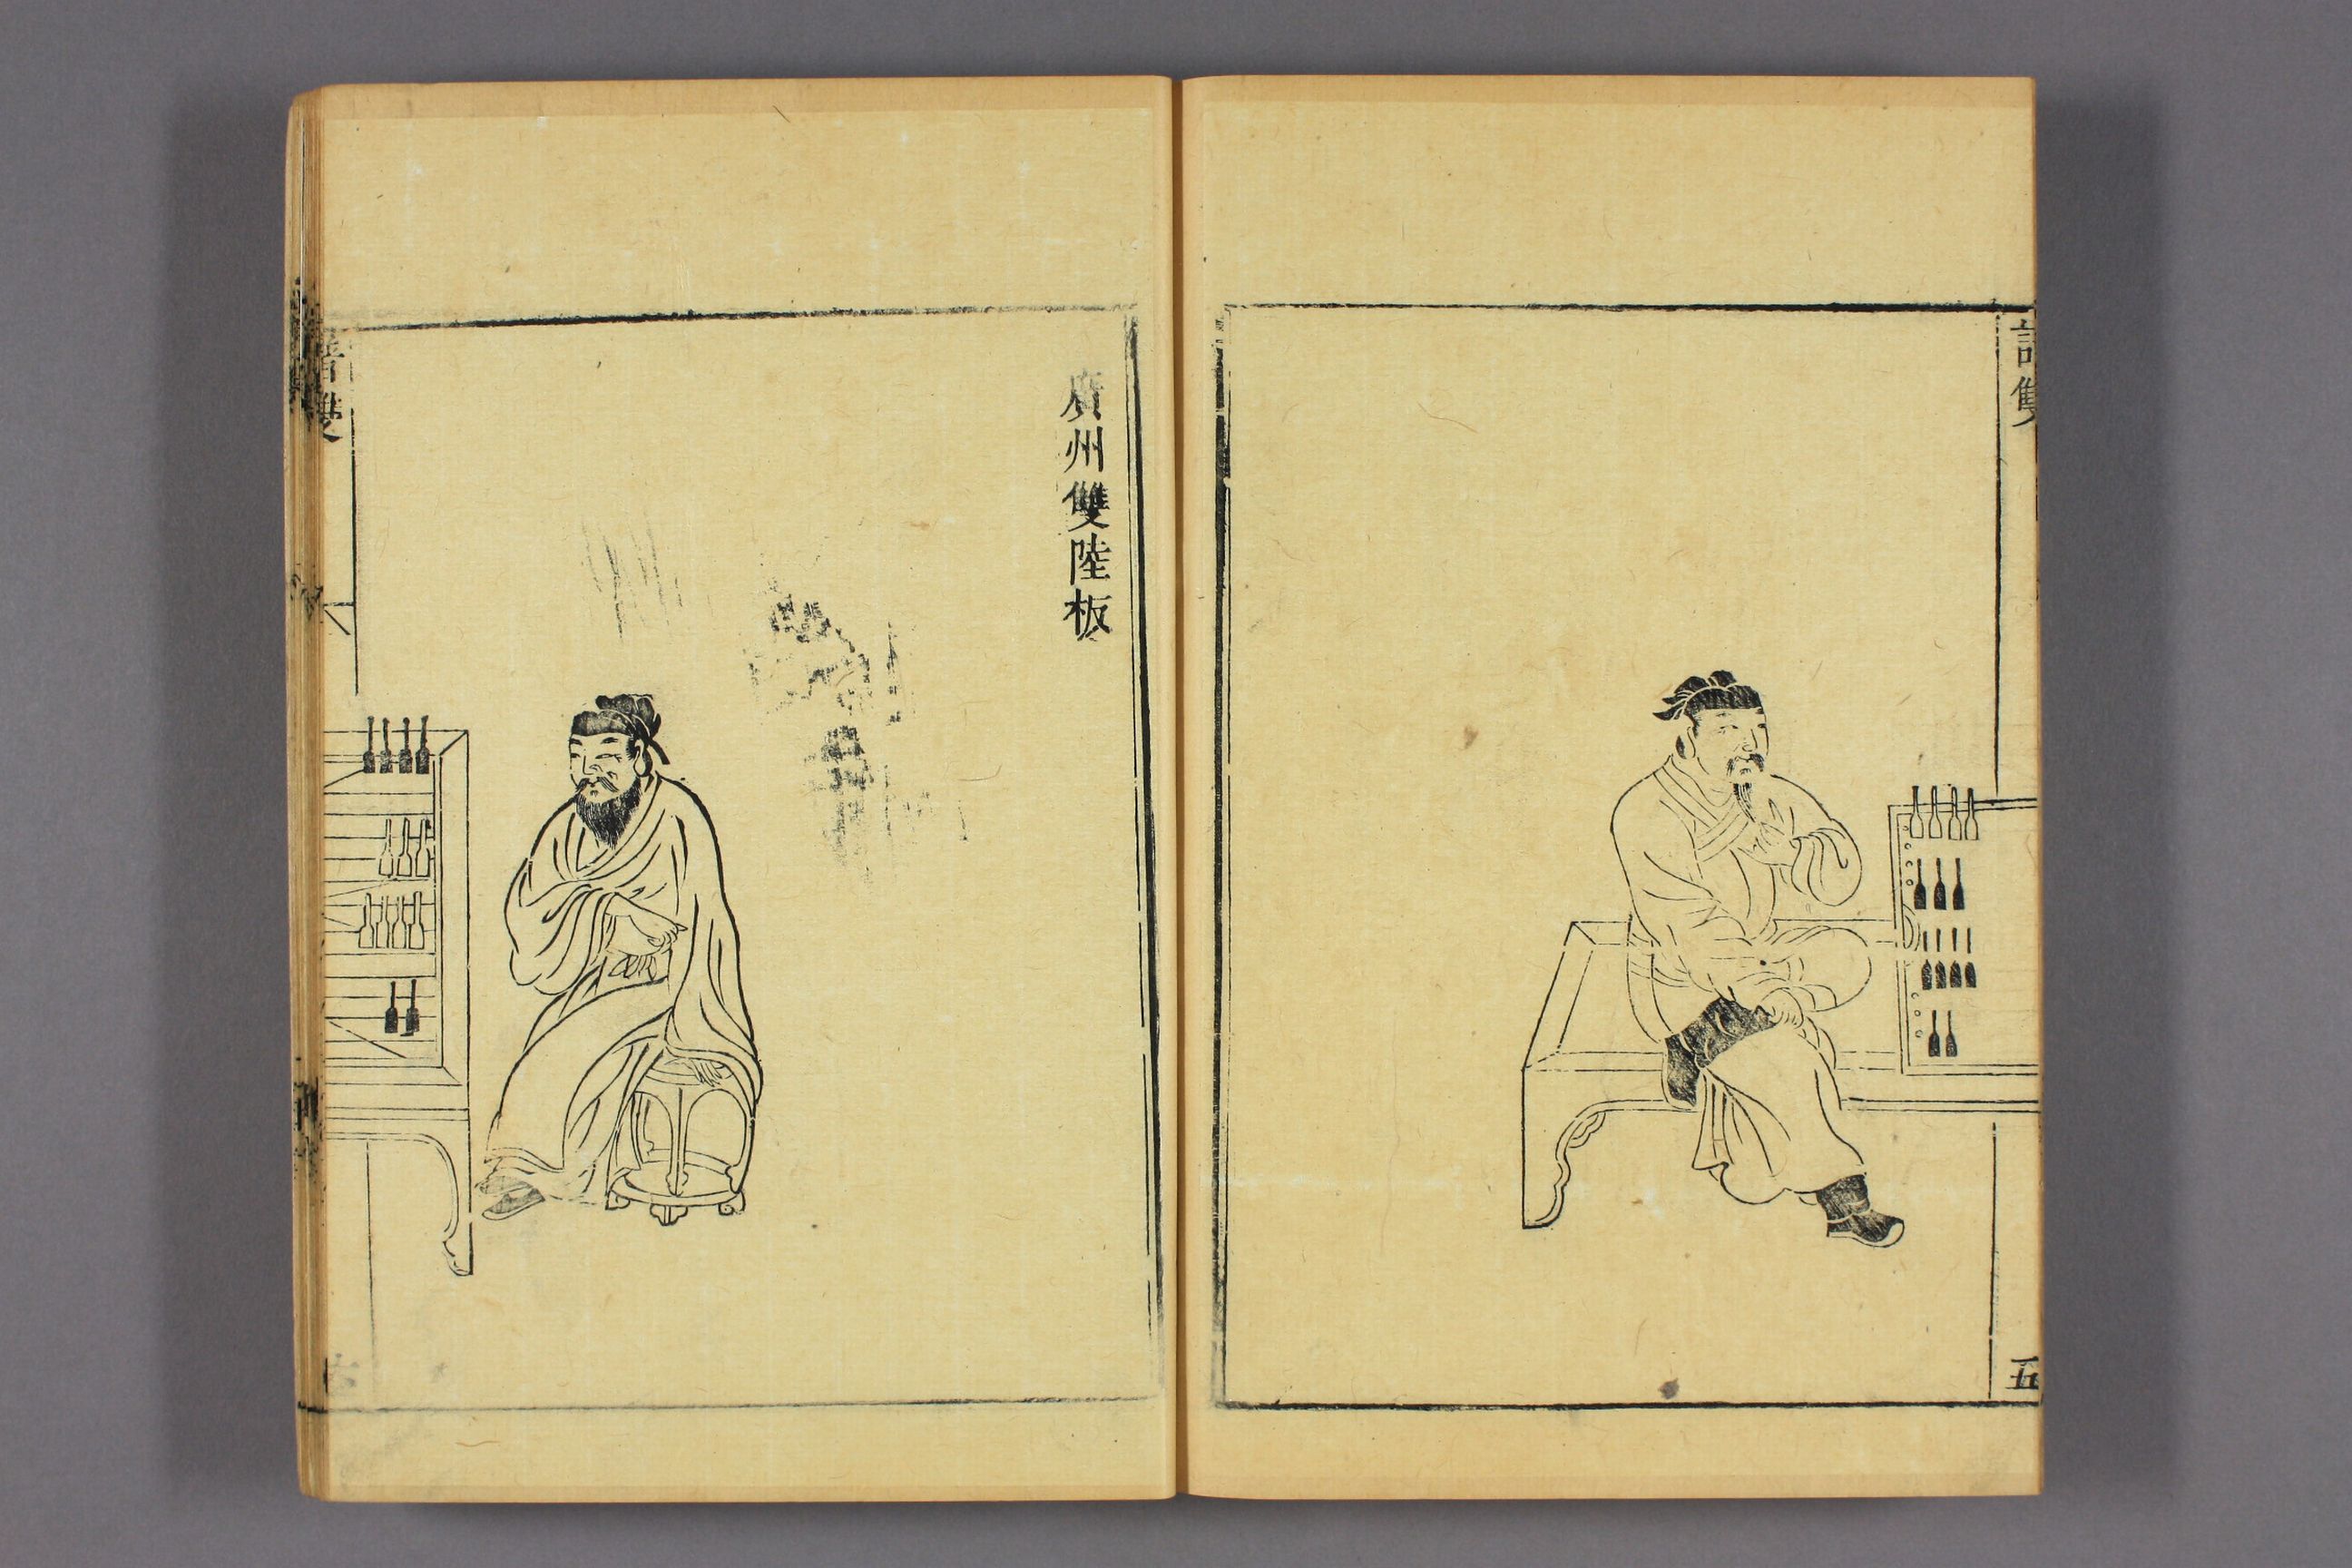 譜雙
五
廣州雙陸板
譜雙